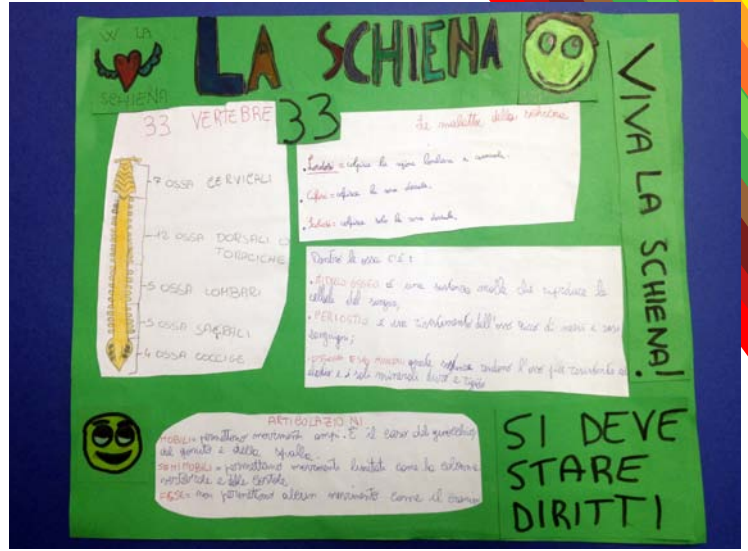 W LA
SCHIENA
LA SCHIENA
VIVA LA SCHIENA!
33 VERTEBRE
33
7 OSSA CERVICALI
12 OSSA DORSALI O
TORACICHE
5 OSSA LOMBARI
5 OSSA SACRALI
4 OSSA COCCIGE
Le malattie della schiena
Lordosi = colpisce la regione lombare e cervicale.
Cifosi = colpisce la zona dorsale.
= colpisce solo la zona dorsale.
Dentro le ossa c'è:
MIDOLLO OSSEO è una sostanza molle che riproduce le
cellule del sangue;
PERIOSTIO è un rivestimento dell'osso ricco di nervi e vasi
sanguigni;
E SALI MINERALI queste sostanze rendono l'osso più resistente ed
elastico e i sali minerali duro e rigido
ARTICOLAZIONI
MOBILI = permettono movimenti ampi. È il caso del ginocchio,
del gomito e della spalla.
SEMIMOBILI = permettono movimenti limitati come la colonna
vertebrale e delle costole
FISSE = non permettono alcun movimento come il cranio
SI DEVE
STARE
DIRITTI